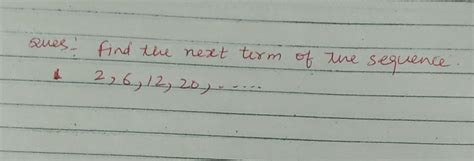 Ques:- find the next term of the sequence.
2, 6, 12, 20, ......